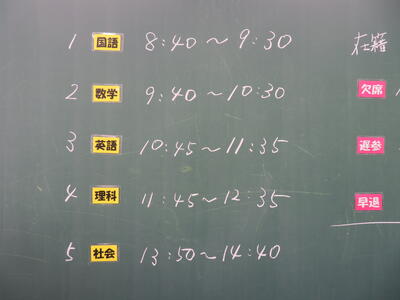 1 国語 8:40〜9:30
2 数学 9:40〜10:30
3 英語 10:45〜11:35
4 理科 11:45〜12:35
5 社会 13:50〜14:40
在籍
欠席
遅参
早退